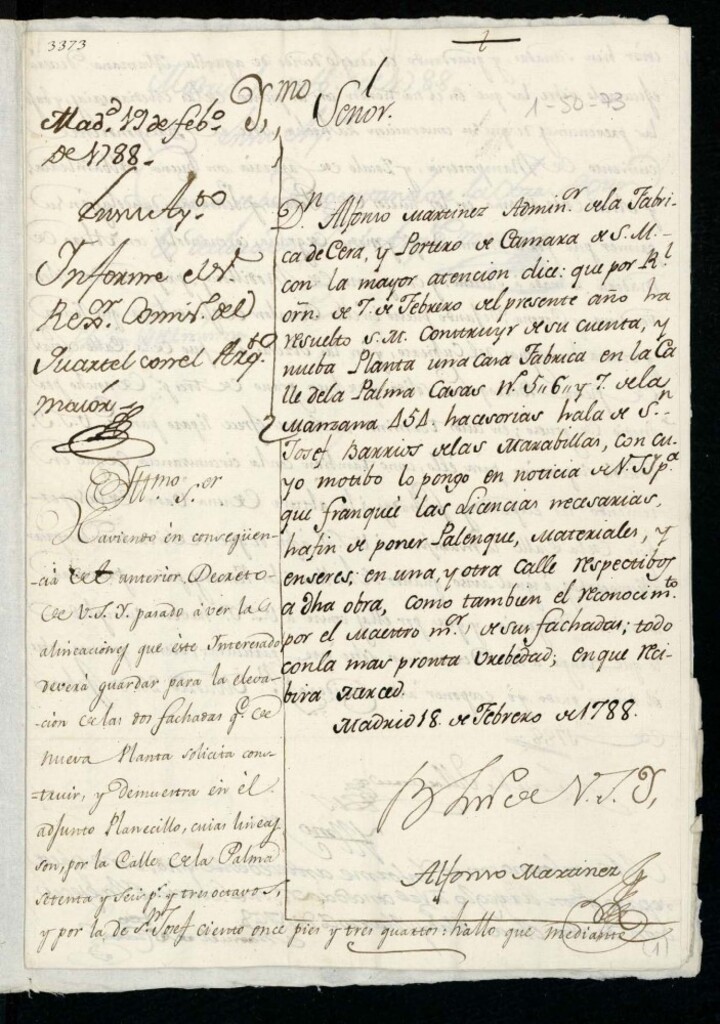 3373
1-50-93
Mad.d 19 de feb.o
de 1788.
Informe el S.r
Rex.or Comis.o del
Quartel con el Arq.to
maior.
Yll.mo S.or
Haviendo en conseqüen-
cia del anterior Decreto
de V.S.Y. pasado à ver las
alineaciones que éste Interesado
deverá guardar para la eleva-
-cion de las dos fachadas q.e de
nueva Planta solicita cons-
truir, y demuestra en el
adjunto Planecillo, cuias lineas
son, por la Calle de la Palma
setenta y seis p.s y tres octavos,
y por la de S.n Josef ciento once pies y tres quartos: hallo que mediante
Y.mo Señor.
D.n Alfonso Martinez Admin.or de la Fabri-
ca de Cera, y Portero de Camara de S. M.
con la mayor atencion dice: que por R.l
orn. de 7. de Febrero del presente año ha
resuelto S. M. Construyr de su cuenta, y
nueba Planta una Casa Fabrica en la Ca
lle de la Palma Casas N.s 5,, 6,, y 7. de la
Manzana 454. hacesorias hala de S.n
Josef Barrios de las Marabillas, con cu-
yo motibo lo pongo en noticia de V.S.Y p.a
que franqueè las Licencias necesarias,
hafin de poner Palenque, Materiales, y
enseres; en una, y otra calle respectibos
a dha obra, como tambien el reconocim.to
por el Maestro m.or, de sus fachadas; todo
con la mas pronta vrebedad; en que reci-
bira Merced.
Madrid 18. de Febrero de 1788.
V. S. Y,
Alfonso Martinez
(1)